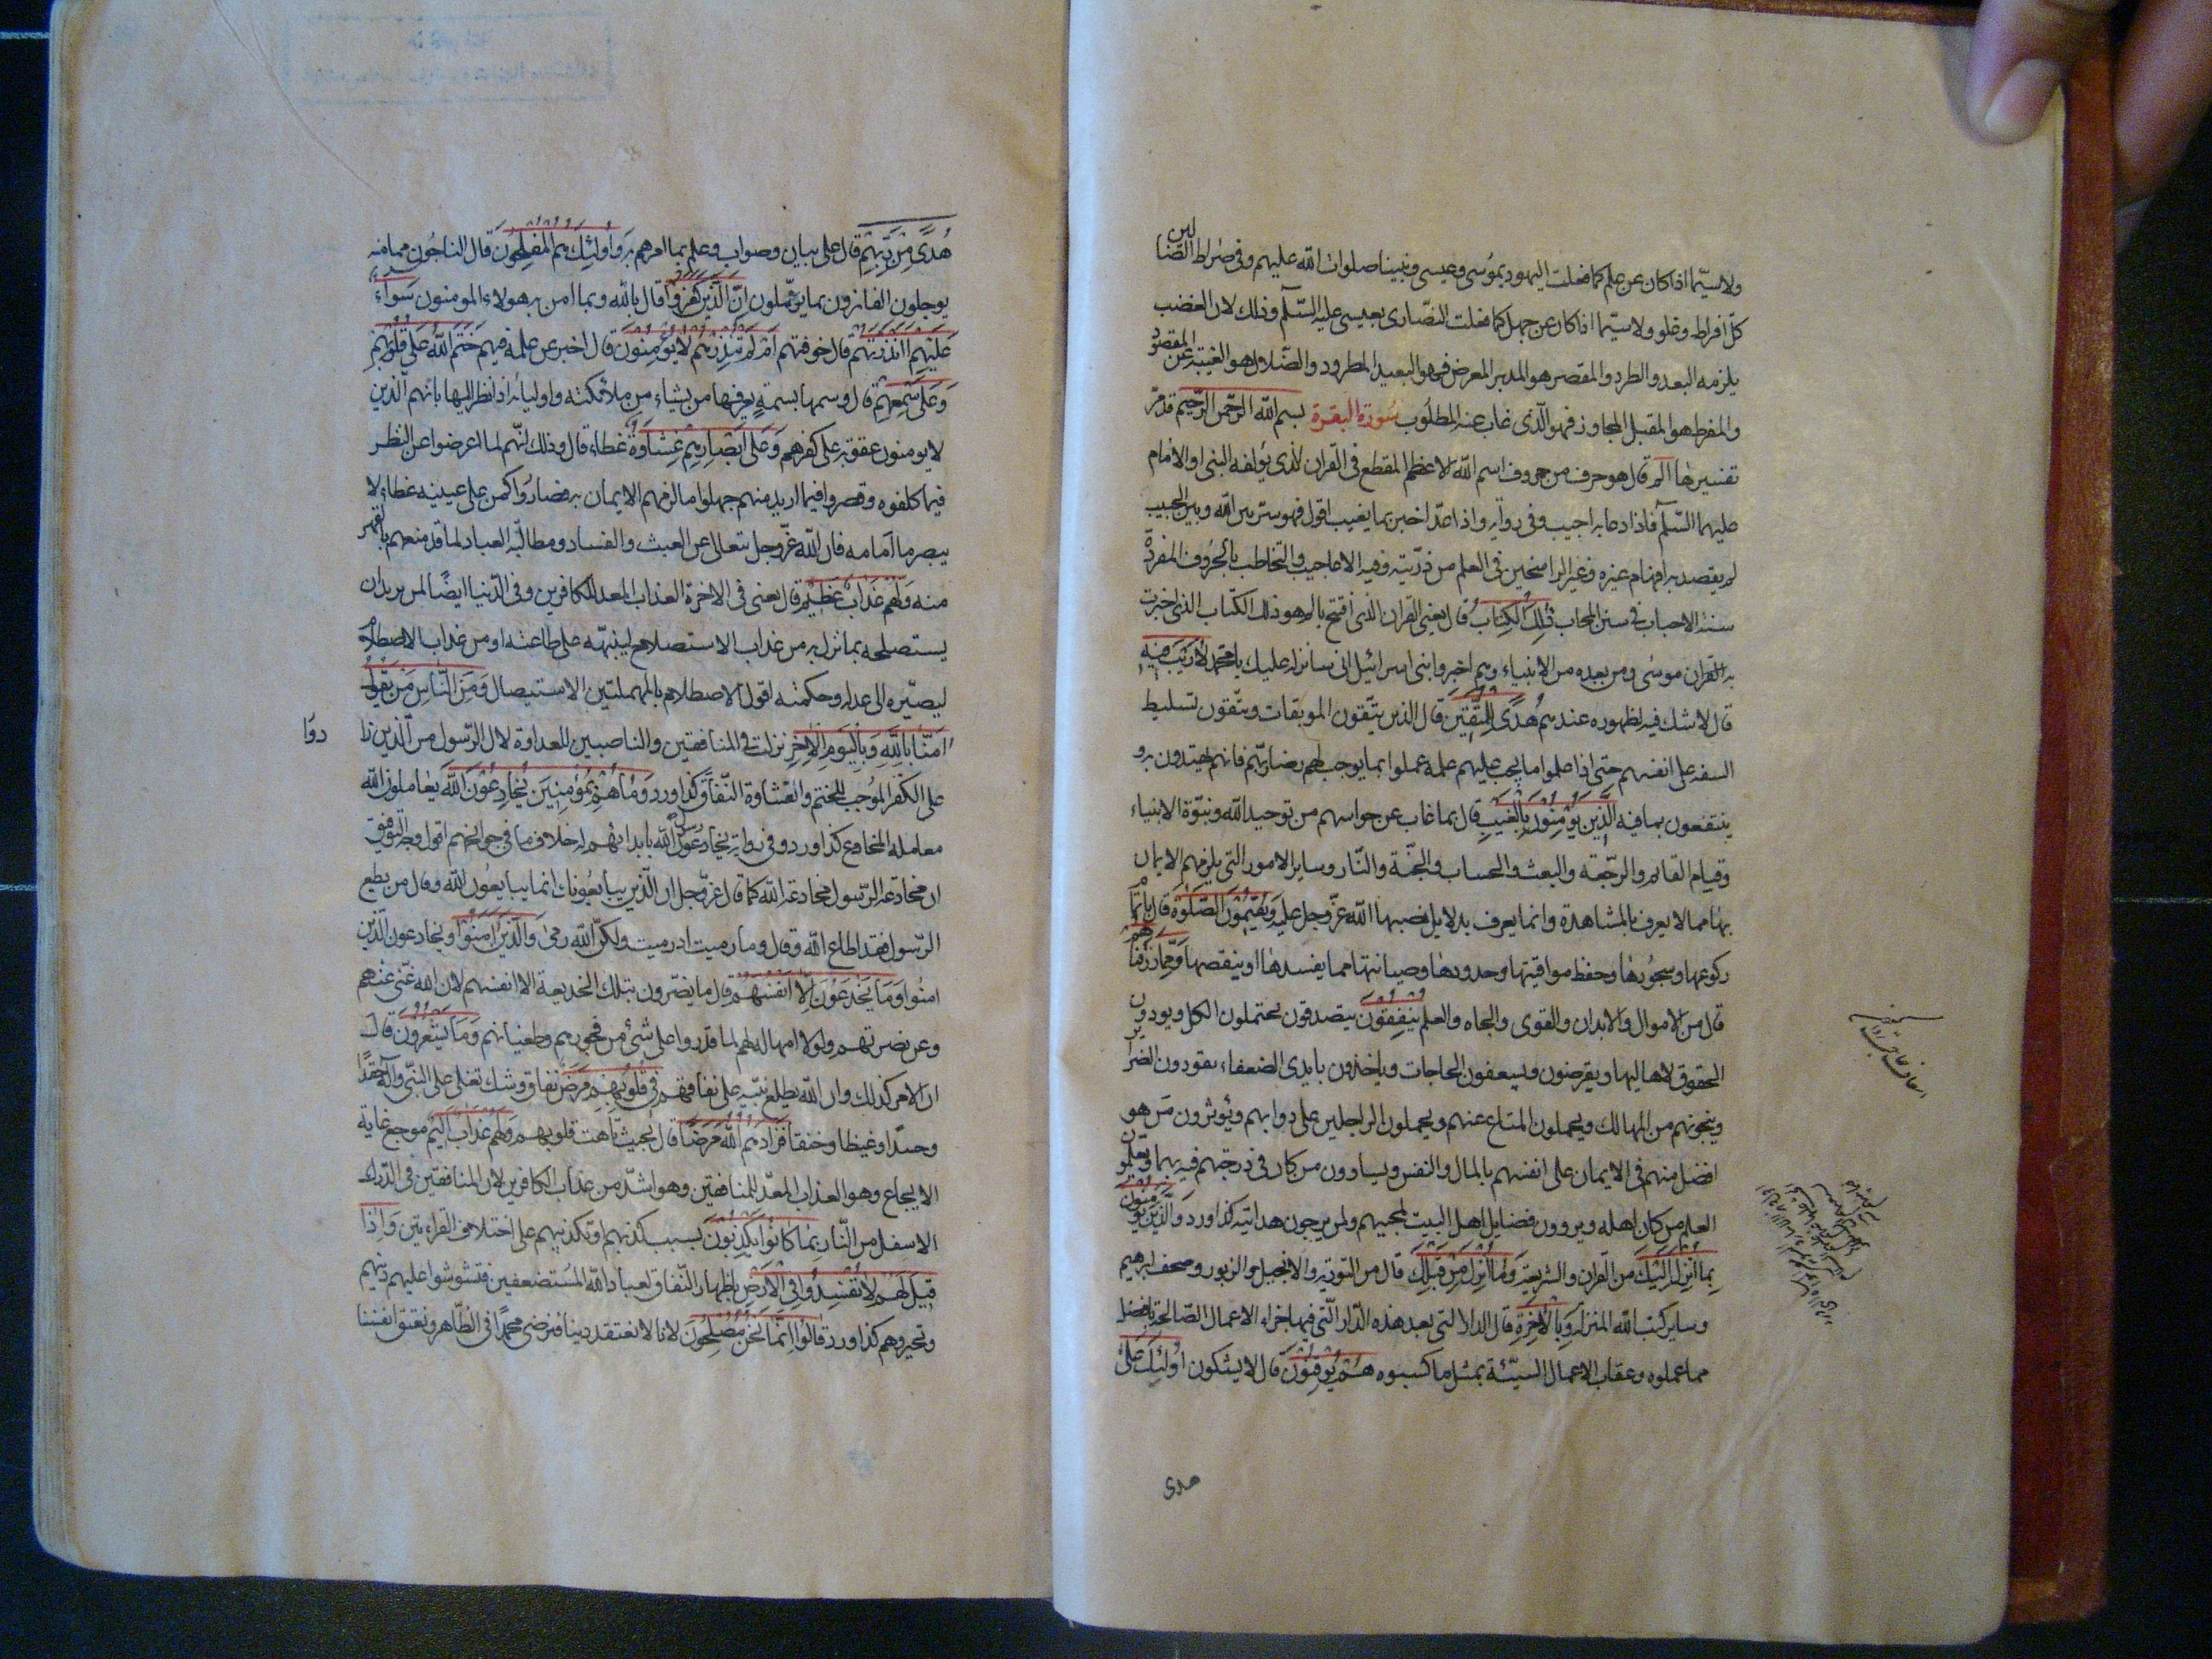 ولا سيّما اذا كان عن علم كما فعلت اليهود بموسى وعيسى ونبينا صلوات الله عليهم وفى صراط الضّالين
كلّ افراط وغلو ولا سيّما اذا كان عن جهل كما فعلت النصّارى بعيسى عليه السّلم وذلك لان الغضب
يلزمه البعد والطرد والمقصر هو المدبر المعرض فهو البعيد المطرود والضّلال هو الغيبة عن المقصود
والمفرط هو المقبل المجاوز فهو الّذى غاب عنه المطلوب سورة البقرة بسم الله الرّحمن الرّحيم قد مرّ
تفسيرها الم قال هو حرف من حروف اسم الله الاعظم المقطع فى القران الذى يؤلفه النبى او الامام
عليهما السّلم فاذا دعا به اجيب وفى رواية واذا عدّ اخبر بما يغيب اقول فهو سرّ بين الله وبين الحبيب
لم يقصد به افهام غيره وغير الراسخين فى العلم من ذرّيته وفيه الاعاجيب والتخاطب بالحروف المفردة
سنة الاحباب فى سنن المحاب ذلك الكتاب قال يعنى القران الذى افتتح بالم هو ذلك الكتاب الذى اخبرت
به القران موسى ومن بعده من الانبياء وهم اخبروا بنى اسرائيل انى سانزله عليك يا محمد لا ريب فيه
قال لا شك فيه لظهوره عندهم هدى للمتّقين قال الذين يتّقون الموبقات ويتّقون تسليط
السفه على انفسهم حتى اذا علموا ما يجب عليهم علمه عملوا بما يوجب لهم رضا ربّهم فانهم يهتدون به و
ينتفعون بما فيه الّذين يؤمنون بالغيب قال بما غاب عن حواسهم من توحيد الله ونبوّة الانبياء
وقيام القائم والرّجعة والبعث والحساب والجنّة والنّار وساير الامور التى يلزمهم الايمان
بها مما لا يعرف بالمشاهدة وانما يعرف بدلايل نصبها الله عزّ وجل عليه ويقيمون الصّلوة قال باتمام
ركوعها وسجودها وحفظ مواقيتها وحدودها وصيانتها مما يفسدها او ينقصها وممّا رزقناهم
قال من الاموال والابدان والقوى والجاه والعلم ينفقون يتصدقون يحتملون الكل ويودون
الحقوق لاهاليها ويقرضون ويسعفون الحاجات وياخذون بايدى الضعفاء يقودون الضراير
وينجونهم من المهالك ويحملون المتاع عنهم ويحملون الراجلين على دوابهم ويؤثرون من هو
افضل منهم فى الايمان على انفسهم بالمال والنفس ويساوون من كان فى درجتهم فيهما ويعلمون
العلم من كان اهله ويروون فضايل اهل البيت لمحبيهم ولمن يرجون هدايته كذا ورد والّذين يؤمنون
بما انزل اليك من القران والشريعة وما انزل من قبلك قال من التورية والانجيل والزبور وصحف ابرهيم
وساير كتب الله المنزلة وبالاخرة قال الدار التى بعد هذه الدّار الّتى فيها جزاء الاعمال الصّالحة بافضل
مما عملوه وعقاب الاعمال السيّئة بمثل ما كسبوه هم يوقنون قال لا يشكون اولئك على
هدى
هدى من ربّهم قال على بيان وصواب وعلم بما امرهم به واولئك هم المفلحون قال الناجون مما منه
يوجلون الفائزون بما يؤمّلون انّ الّذين كفروا قال بالله وبما امن به هولاء المومنون سواء
عليهم ءانذرتهم قال خوفتهم ام لم تنذرهم لا يؤمنون قال اخبر عن علمه فيهم ختم الله على قلوبهم
وعلى سمعهم قال وسمها بسمة يعرفها من يشاء من ملائكته واوليائه اذا نظر اليها بانهم الّذين
لا يومنون عقوبة على كفرهم وعلى ابصارهم غشاوة غطاء قال وذلك انّهم لما اعرضوا عن النظر
فيما كلفوه وقصروا فيما اريد منهم جهلوا ما لزمهم الايمان به فصاروا كمن على عينيه غطاء لا
يبصر ما امامه فان الله عزّ وجل يتعالى عن العبث والفساد ومطالبة العباد لما قد منعهم بالقهر
منه ولهم عذاب عظيم قال يعنى فى الاخرة العذاب المعد للكافرين وفى الدّنيا ايضًا لمن يريد ان
يستصلحه بما ينزل به من عذاب الاستصلاح لينبّهه على طاعته او من عذاب الاصطلام
ليصيّره الى عدله وحكمته اقول الاصطلام بالمهملتين الاستيصال ومن النّاس من يقول
امنّا بالله وباليوم الاخر نزلت فى المنافقين والناصبين العداوة لال الرّسول من الّذين زا
دوا
على الكفر الموجب للختم والغشاوة النّفاق كذا ورد وما هم بمؤمنين يخادعون الله يعاملون الله
معاملة المخادع كذا ورد وفى رواية يخادعون رسول الله بابدائهم له خلاف ما فى جوانحهم اقول وجه التّوفيق
ان مخادعة الرّسول مخادعة الله كما قال عزّ وجل ان الّذين يبايعونك انما يبايعون الله وقال من يطع
الرّسول فقد اطاع الله وقال وما رميت اذ رميت ولكنّ الله رمى والّذين امنوا ويخادعون الّذين
امنوا وما يخدعون الّا انفسهم قال ما يضرّون بتلك الخديعة الا انفسهم لان الله غنى عنهم
وعن نصرتهم ولولا امهاله لهم لما قدروا على شئ من فجورهم وطغيانهم وما يشعرون قال
ان الامر كذلك وان الله يطلع نبيّه على نفاقهم فى قلوبهم مرض نفاق وشك تغلى على النبى واله حقدًا
وحسدًا وغيظا وحنقا فزادهم الله مرضًا قال بحيث تاهت قلوبهم ولهم عذاب اليم موجع غاية
الايجاع وهو العذاب المعدّ للمنافقين وهو اشدّ من عذاب الكافرين لان المنافقين فى الدّرك
الاسفل من النّار بما كانوا يكذبون بسبب كذبهم او تكذيبهم على اختلاف القراءتين واذا
قيل لهم لا تفسدوا فى الارض باظهار النّفاق لعباد الله المستضعفين فتشوشوا عليهم دينهم
وتحيروهم كذا ورد قالوا انّما نحن مصلحون لانا لا نعتقد دينا فنرضى محمدًا فى الظّاهر ونعتق انفسنا